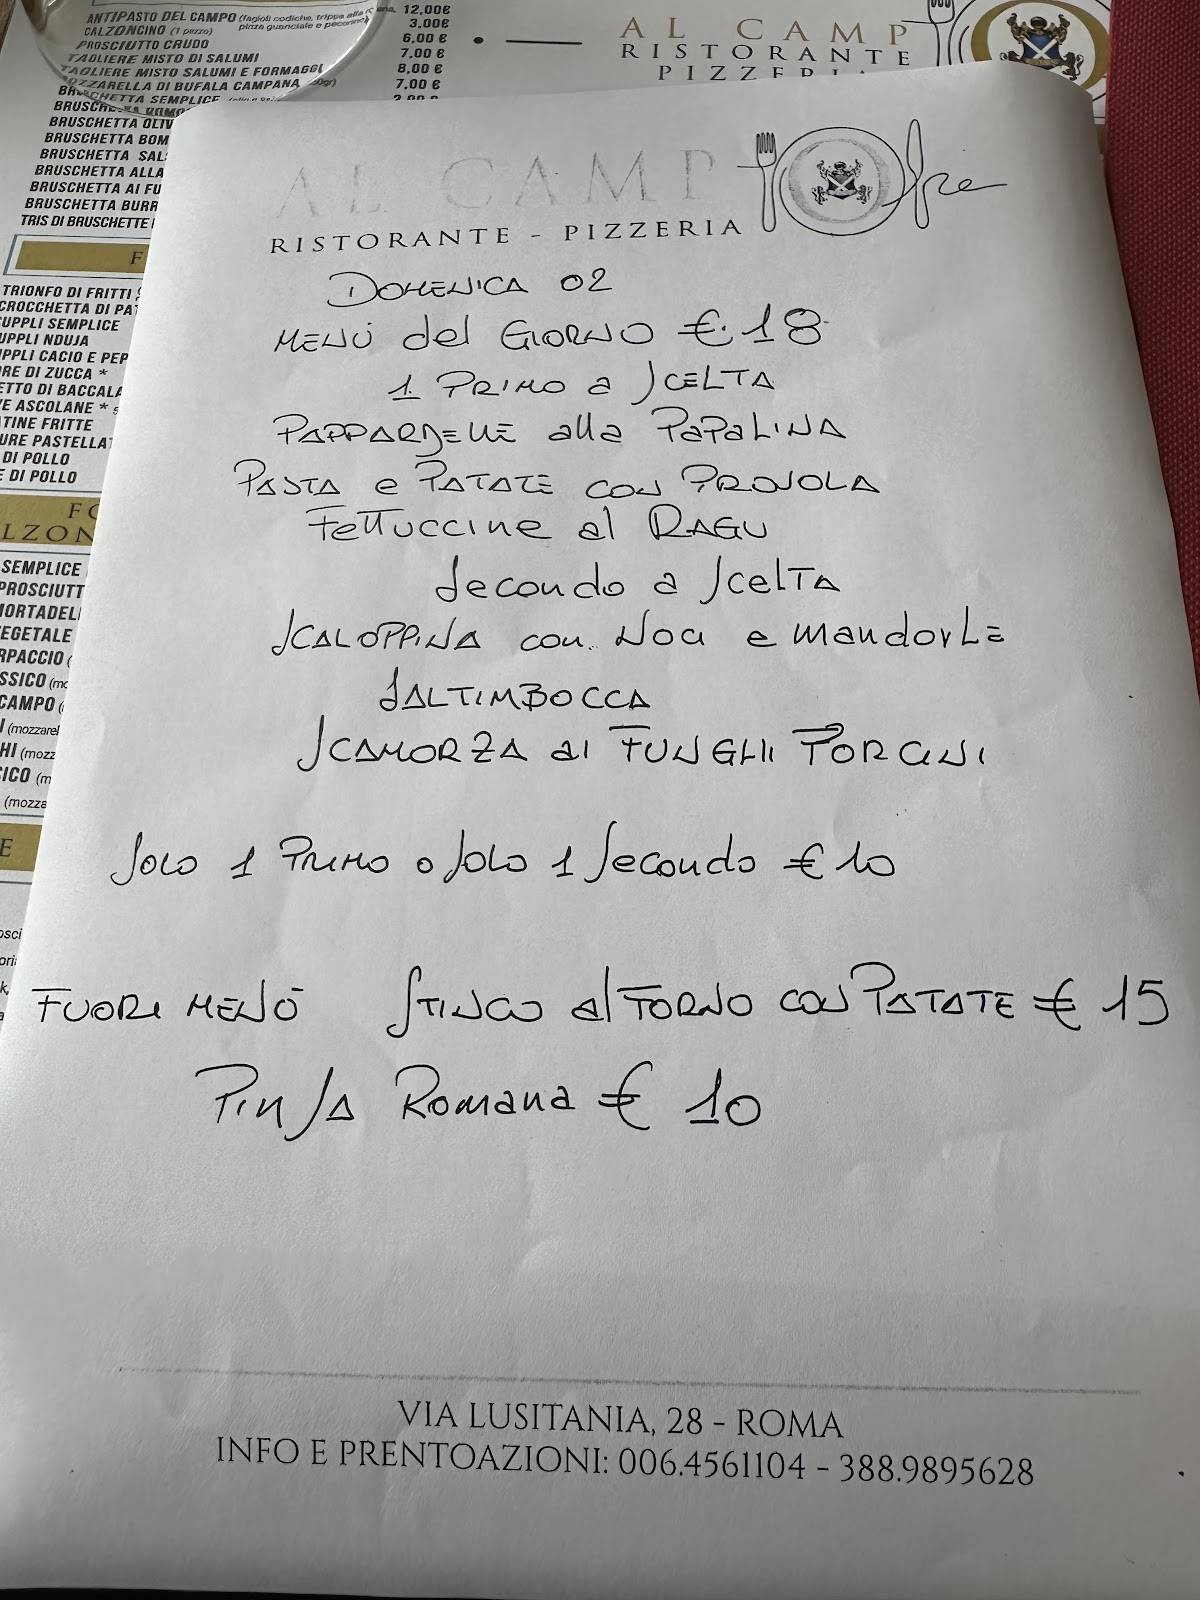 ANTIPASTO DEL CAMPO (fagioli codiche, trippa alla 12,00€
pinza guanciale e pecorino)
CALZONCINO (1 pezzo) 3.00€
PROSCIUTTO CRUDO 6,00 €
TAGLIERE MISTO DI SALUMI 7,00 €
TAGLIERE MISTO SALUMI E FORMAGGI 8,00 €
MOZZARELLA DI BUFALA CAMPANA 7.00 €
BRUSCHETTA SEMPLICE
BRUSCHETTA
BRUSCHETTA OLIV
BRUSCHETTA BOM
BRUSCHETTA SAL
BRUSCHETTA ALLA
BRUSCHETTA AI FU
BRUSCHETTA BURR
TRIS DI BRUSCHETTE
F
TRIONFO DI FRITTI
CROCCHETTA DI PA
SUPPLI SEMPLICE
UPPLI NDUJA
PPLI CACIO E PEP
RE DI ZUCCA *
ETTO DI BACCALA
E ASCOLANE *
TINE FRITTE
URE PASTELLAT
DI POLLO
E DI POLLO
LZON
SEMPLICE
PROSCIUTT
MORTADEL
EGETALE
RPACCIO
SSICO
CAMPO
(mozzarel
HI (mozz
SICO (m
(mozza
E
AL CAMP
RISTORANTE
PIZZERIA
AL CAMP
RISTORANTE - PIZZERIA
DOMENICA 02
MENÙ del GIORNO €.18
1 PRIMO a SCELTA
PAPPARDELLE alla PAPALINA
PASTA e PATATE CON PROVOLA
FeTTUCCINE al RAGU
Secondo a SCelTA
SCALOPPINA con NOCI e mandorLE
SALTIMBOCCA
SCAMORZA ai FUNGHI PORCINI
SOLO 1 PRIMO o SOLO 1 Secondo € 10
FUORI MENÙ STINCO al FORNO CON PATATE € 15
PINSA Romana € 10
VIA LUSITANIA, 28 - ROMA
INFO E PRENTOAZIONI: 006.4561104 - 388.9895628